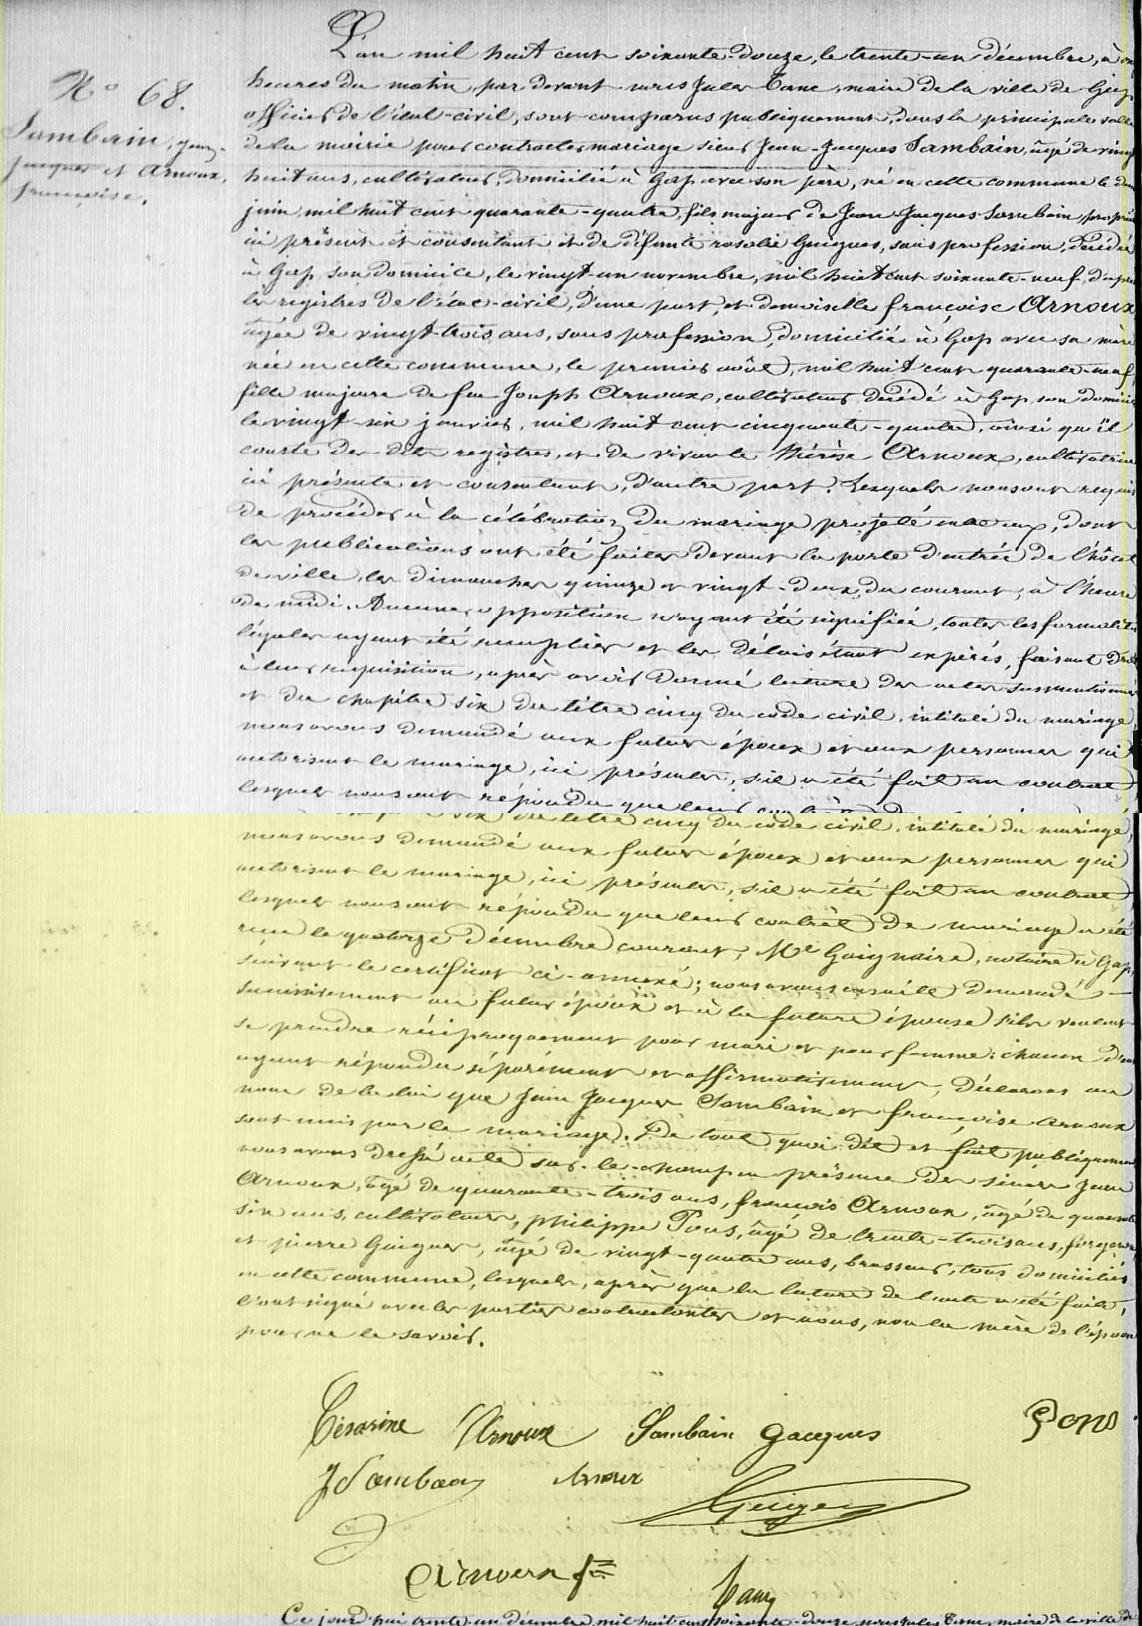 N° 68.
Sambain, Jean-
Jacques et Arnoux,
françoise.
L'an mil huit cent soixante-douze, le trente-un décembre, à
heures du matin, par devant nous Jules maire de la ville de Gap
officier de l'état-civil, sont comparus publiquement, dans la principale salle
de la mairie pour contracter mariage sieur Jean-Jacques Sambain, âgé de vingt
huit ans, cultivateur, domicilié à Gap avec son père, né en cette commune le
juin, mil huit cent quarante-quatre, fils majeur de Jean Jacques Sambain,
ici présent et consentant et de défunte rosalie Guigues, sans profession, décédée
à Gap son domicile, le vingt-un novembre, mil huit cent soixante-neuf, d'après
les registres de l'état-civil, d'une part, et demoiselle françoise Arnoux
âgée de vingt-trois ans, sans profession, domiciliée à Gap avec sa mère
née en cette commune, le premier août, mil huit cent quarante-neuf
fille majeure de feu Joseph Arnoux, cultivateur décédé à Gap, son domicile
le vingt-six janvier, mil huit cent cinquante-quatre, ainsi qu'il
conste des dits registres, et de vivante thérèse Arnoux, cultivatrice
ici présente et consentant, d'autre part. Lesquels nous ont requis
de procéder à la célébration du mariage projeté entre eux, dont
les publications ont été faites devant la porte d'entrée de l'hôtel
de ville, les dimanches quinze et vingt-deux du courant, à l'heure
de midi. Aucune opposition n'ayant été signifiée, toutes les formalités
légales ayant été remplies et les délais étant expirés, faisant droit
à leur réquisition, après avoir donné lecture des actes susmentionnés
et du chapitre six du titre cinq du code civil, intitulé du mariage,
nous avons demandé aux futurs époux et aux personnes qui
autorisent le mariage, ici présentes, s'il a été fait un contrat
lesquels nous ont répondu que leur
six du titre cinq du code civil, intitulé du mariage,
nous avons demandé aux futurs époux et aux personnes qui
autorisent le mariage, ici présentes, s'il a été fait un contrat,
lesquels nous ont répondu que leur contrat de mariage a été
reçu le quatorze décembre courant, Me Gaignaire, notaire à Gap,
suivant le certificat ci-annexé; nous avons ensuite demandé
successivement au futur époux et à la future épouse s'ils veulent
se prendre réciproquement pour mari et pour femme: chacun d'eux
ayant répondu séparément et affirmativement, déclarons au
nom de la loi que Jean Jacques Sambain et françoise Arnoux
sont unis par le mariage. De tout quoi dit et fait publiquement
nous avons dressé acte sur-le-champ en présence des sieurs Jean
Arnoux, âgé de quarante-trois ans, françois Arnoux, âgé de quarante
six ans, cultivateurs, philippe Pons, âgé de trente-trois ans, forgeron,
et pierre Guigues, âgé de vingt-quatre ans, brasseur, tous domiciliés
en cette commune, lesquels, après que la lecture de l'acte a été faite,
l'ont signé avec les parties contractantes et nous, non la mère de l'épouse
pour ne le savoir.
Césarine Arnoux Sambain Jacques Pons
J Sambain Arnoux Guigues
Arnoux
Ce jourd'hui trente-un décembre, mil huit cent soixante-douze nous Jules maire de la ville de